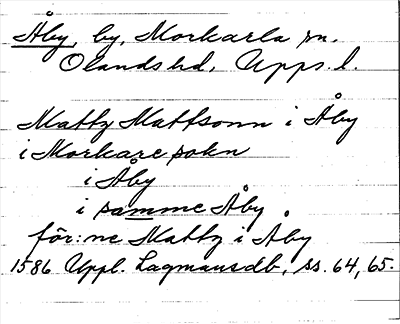 Åby, by, Morkarla sn.
Olands hd, Upps. l.
Mattz Mattsonn i Åby
i Morkare sokn
i Åby
i samme Åby
för:ne Mattz i Åby
1586 Uppl. Lagmansdb, ss. 64, 65.